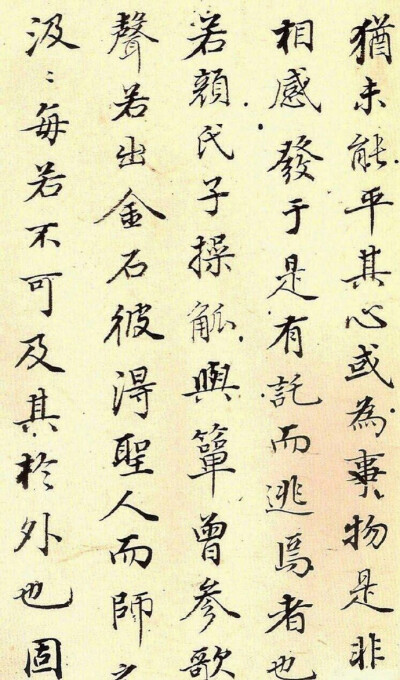 猶未能平其心或為事物是非
相感發于是有託而逃焉者也
若顔氏子操觚與簞曾參歌
聲若出金石彼得聖人而師之
汲〻每若不可及其於外也固